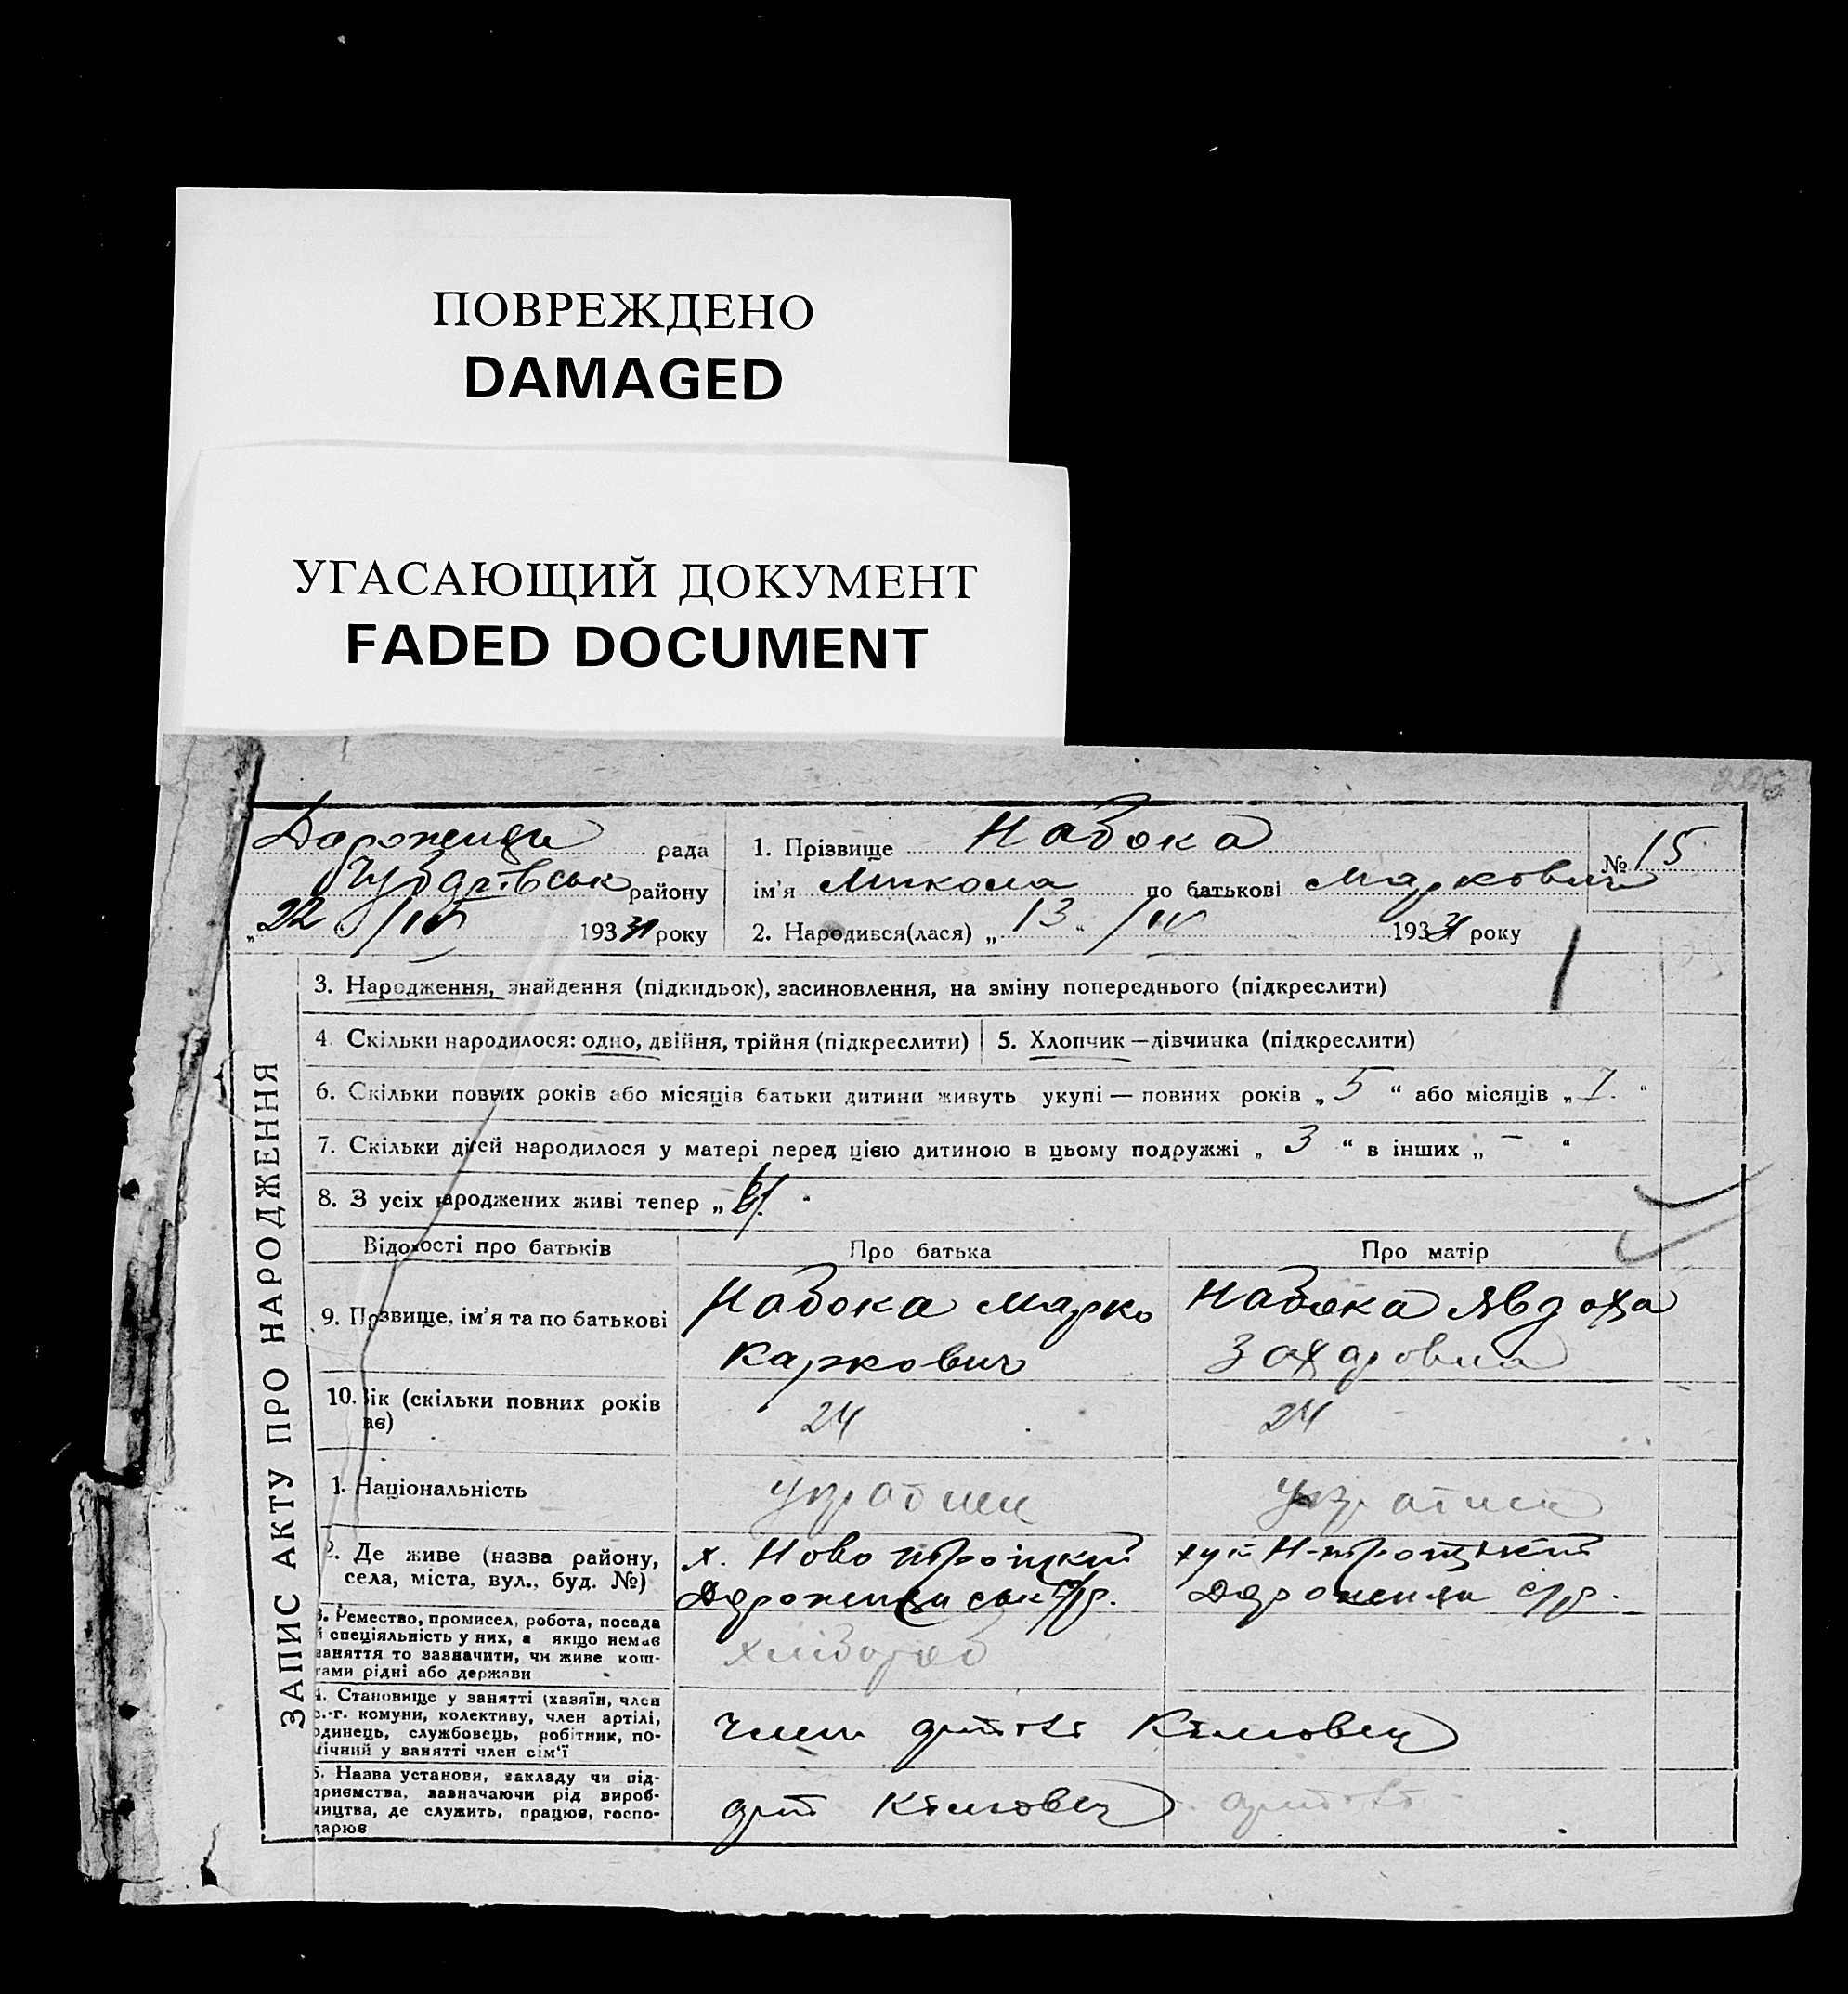 ПОВРЕЖДЕНО
DAMAGED
УГАСАЮЩИЙ ДОКУМЕНТ
FADED DOCUMENT
рада
1. Прізвище Набока
№ 15
району
ім'я Микола по батькові Маркович
„22 /IV 1931 року
2. Народився(лася) „13“ /IV 1931 року
3. Народження, знайдення (підкидьок), засиновлення, на зміну попереднього (підкреслити)
4. Скільки народилося: одно, двійня, трійня (підкреслити)
5. Хлопчик—дівчинка (підкреслити)
6. Скільки повних років або місяців батьки дитини живуть укупі — повних років „5“ або місяців „ “
7. Скільки дітей народилося у матері перед цією дитиною в цьому подружжі „3“ в інших „-“
8. З усіх народжених живі тепер „
ЗАПИС АКТУ ПРО НАРОДЖЕННЯ
Відомості про батьків
Про батька
Про матір
9. Прізвище, ім'я та по батькові
Набока Марко
Карпович
Набока Явдоха
Захаровна
10. Вік (скільки повних років
має)
24
24
1. Національність
україн
україн
2. Де живе (назва району,
села, міста, вул., буд. №)
х. Ново троіцкий
хут Н-троіцький
3. Ремество, промисел, робота, посада
й спеціяльність у них, а якщо немає
заняття то зазначити, чи живе кош-
тами рідні або держави
хлібороб
4. Становище у занятті (хазяїн, член
с.-г. комуни, колективу, член артілі,
одинець, службовець, робітник, по-
мічний у занятті член сім'ї
член артілі
5. Назва установи, закладу чи під-
приємства, зазначаючи рід вироб-
ництва, де служить, працює, госпо-
дарює
арт